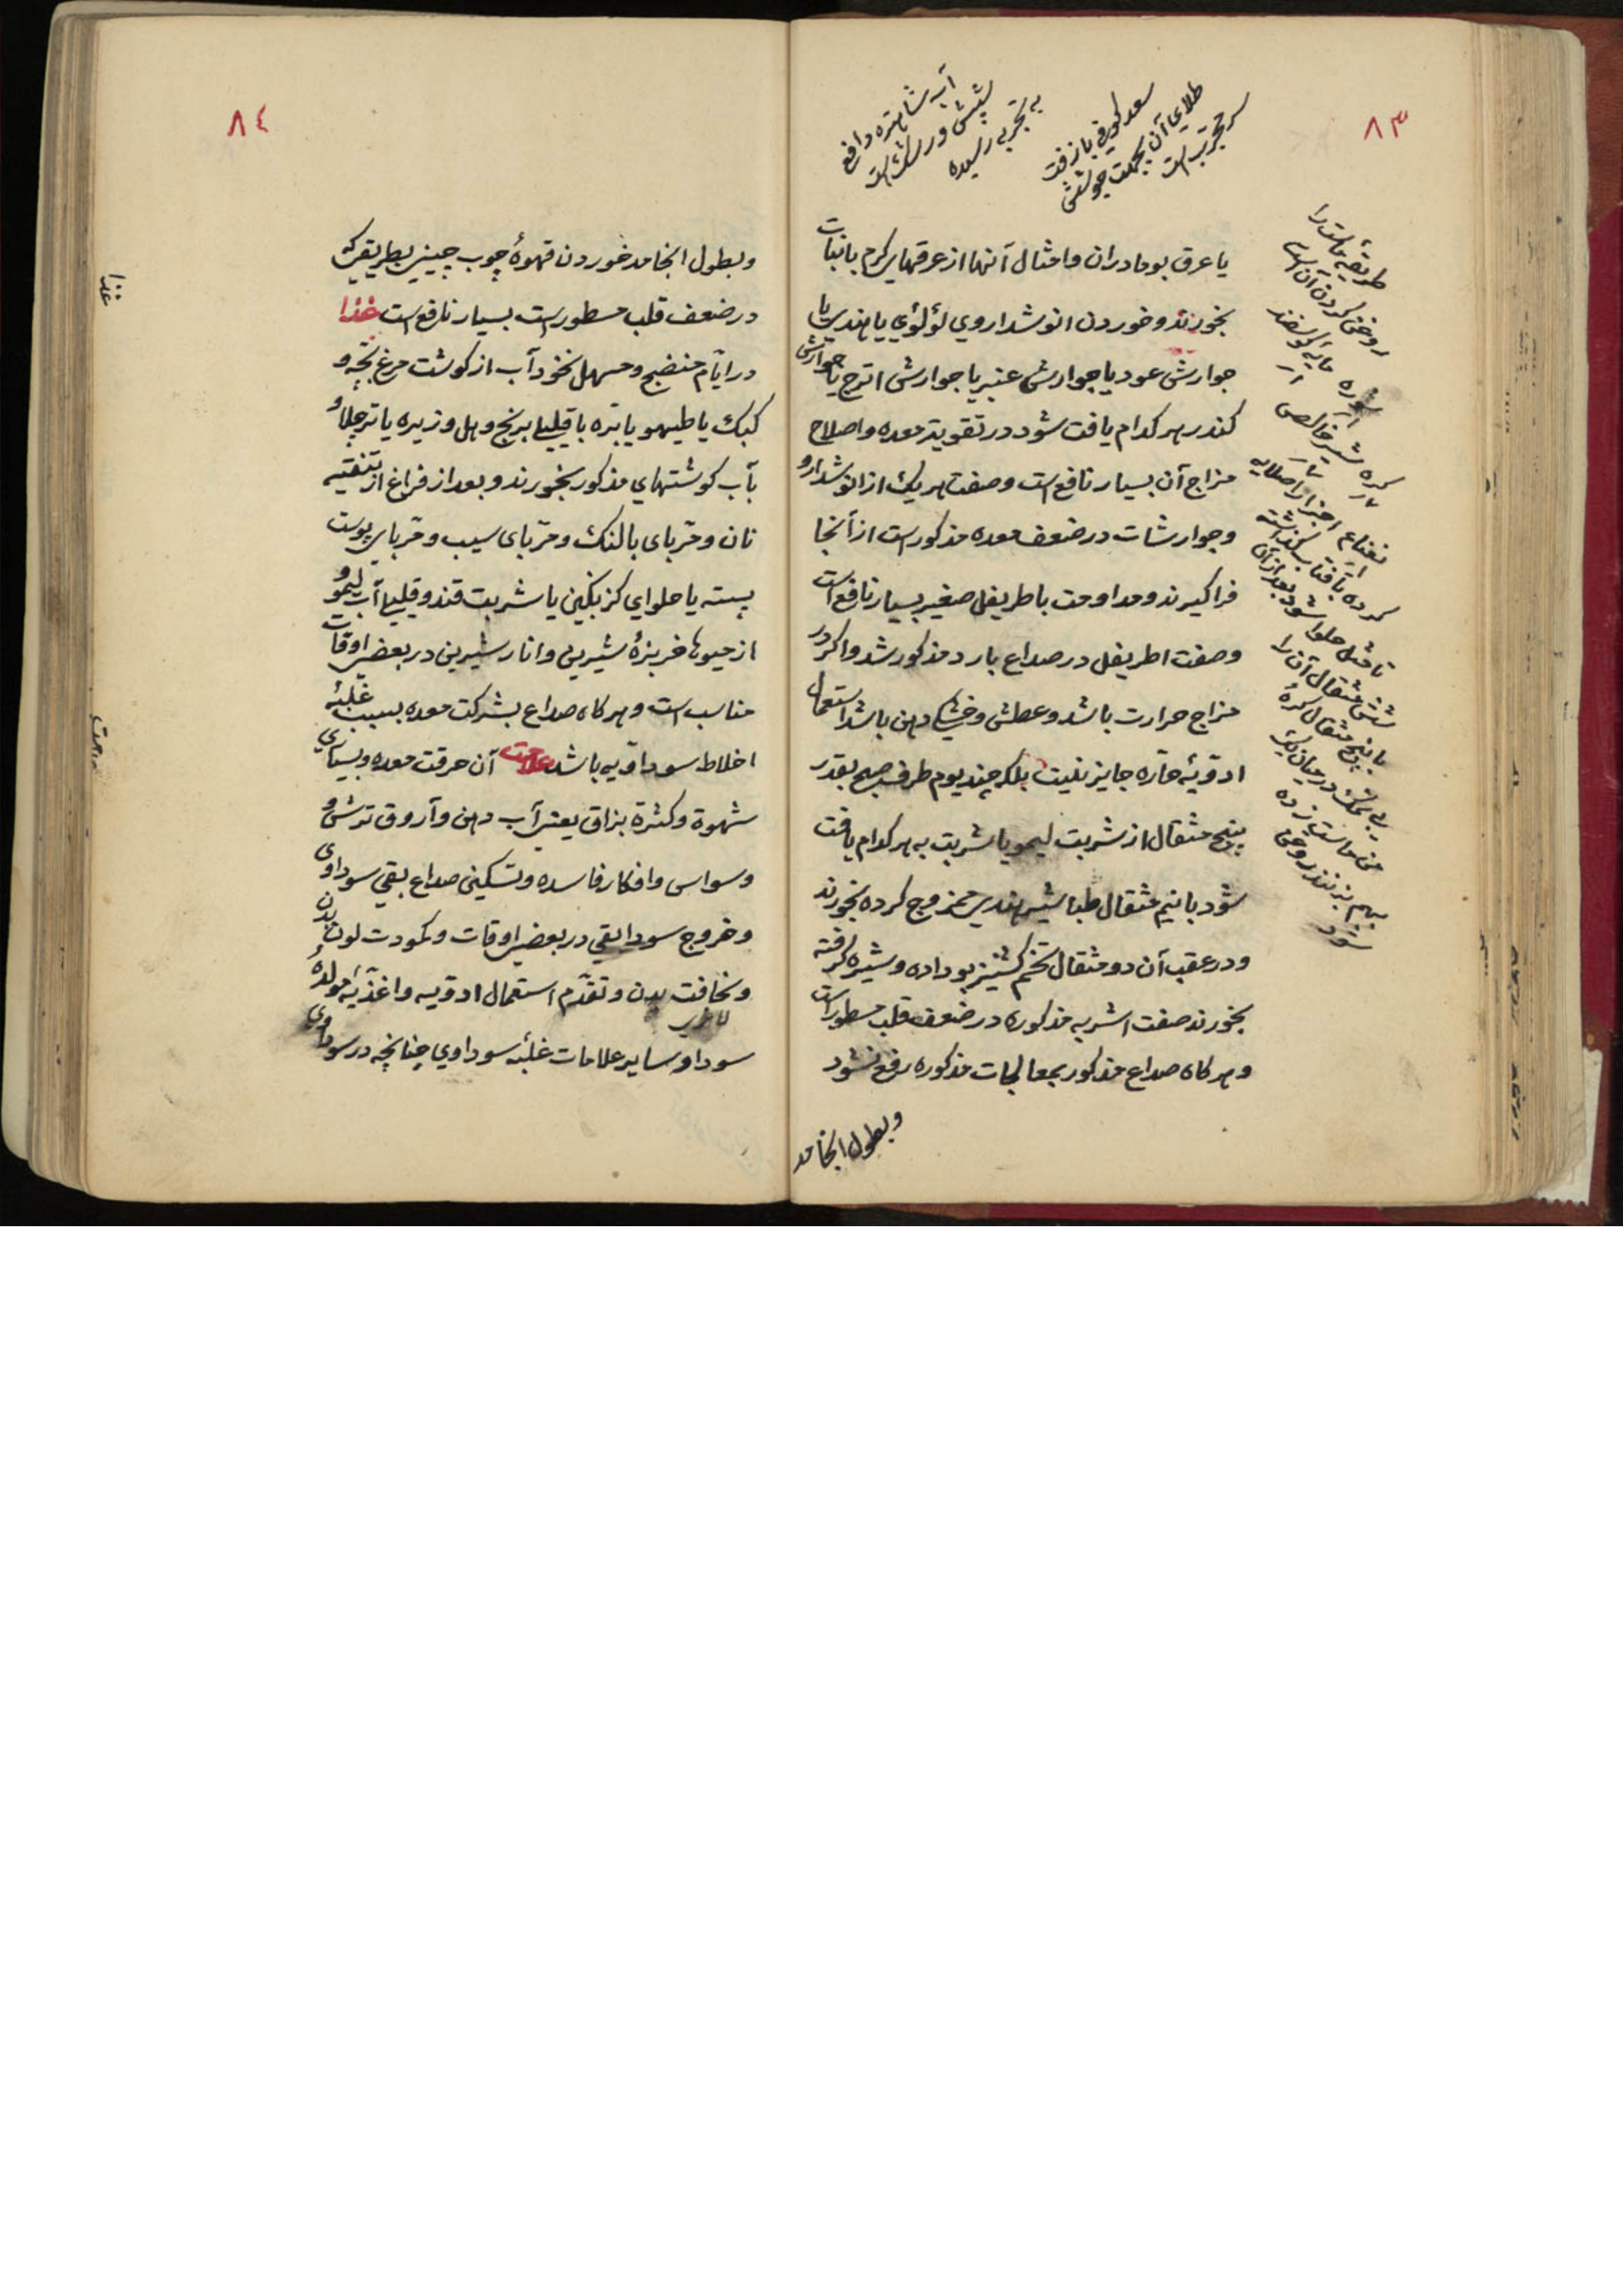 ٨٣
آب شاهتره دافع
شپش و رشک است
به تجربه رسیده
سعد کوفی با زفت
طلای آن بجهت جوشش
سر مجرب است
یا عرق بومادران و امثال آنها از عرقهای کرم با نبات
بخورند و خوردن انوشداروی لؤلؤی یا هندی یا
جوارش عود یا جوارش عنبر یا جوارش اترج یا جوارش
کندر هر کدام یافت شود در تقویة معده و اصلاح
مزاج آن بسیار نافع است و صفت هریک از انوشدارو
و جوارشات در ضعف معده مذکور است از آنجا
فراکیرند و مداومت باطریفل صغیر بسیار نافع است
وصفت اطریفل در صداع بارد مذکور شد و اکر در
مزاج حرارت باشد و عطش و خشکی دهن باشد استعمال
ادویهٔ حاره جایز نیست بلکه چند یوم طرف صبح بقدر
پنج مثقال از شربت لیمو یا شربت به هر کدام یافت
شود با نیم مثقال طباشیر هندی ممزوج کرده بخورند
و در عقب آن دو مثقال تخم کشنیز بوداده و شیره کرفته
بخورند صفت اشربه مذکوره در ضعف قلب مسطور است
و هرکاه صداع مذکور بمعالجات مذکوره رفع نشود
و بطول انجامد
روغن کردن آن است
کرده بآفتاب بگذاشته
تا مثل حلوا شود بعد از آن
شش مثقال آن را
با پنج مثقال کرهٔ
بی نمک در میان یک
من ماست زده
بهم بزنند روغن
شود
٨٤
و بطول انجامد خوردن قهوهٔ چوب چینی بطریقی که
در ضعف قلب مسطور است بسیار نافع است غذا
در ایام منضج و مسهل نخودآب از کوشت مرغ بچه و
کبک یا طیهو یا بره با قلیلی برنج و هل و زیره یا تر چلاو
بآب کوشتهای مذکور بخورند و بعد از فراغ از تنقیه
نان و مربای بالنک و مربای سیب و مربای پوست
پسته یا حلوای کزنکبین یا شربت قند و قلیلی آب لیمو و
از میوها خربزهٔ شیرین و انار شیرین در بعض اوقات
مناسب است و هرکاه صداع بشرکت معده بسبب غلبهٔ
اخلاط سوداویه باشد علامت آن حرقت معده و بسیاری
شهوة و کثرة بزاق یعنی آب دهن و آروق ترش و
وسواس و افکار فاسده و تسکین صداع بقی سوداوی
و خروج سودا بقی در بعض اوقات و کمودت لون بدن
و نحافت بدن و تقدم استعمال ادویه و اغذیهٔ مولدهٔ
لاغری
سودا و سایر علامات غلبهٔ سوداوی چنانچه در سوداوی
غذا
علامت